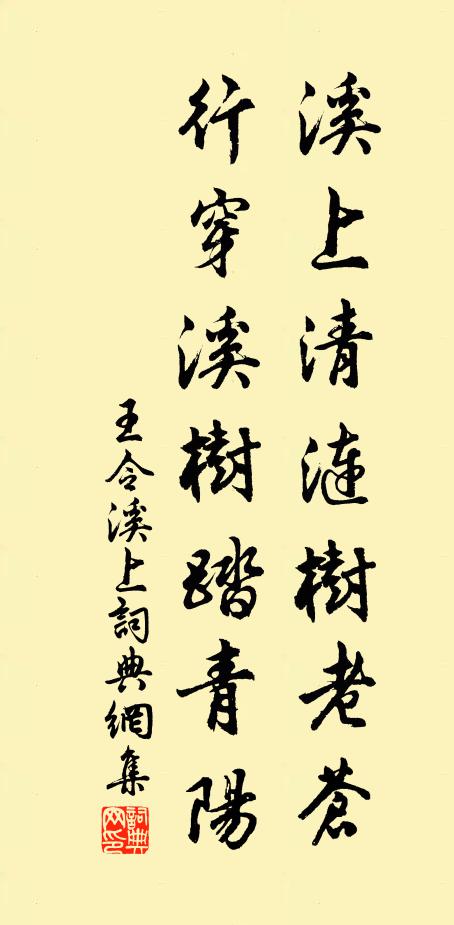 溪上清漣樹老蒼
行穿溪樹踏青陽
王令溪上詞典網集
詞典網印